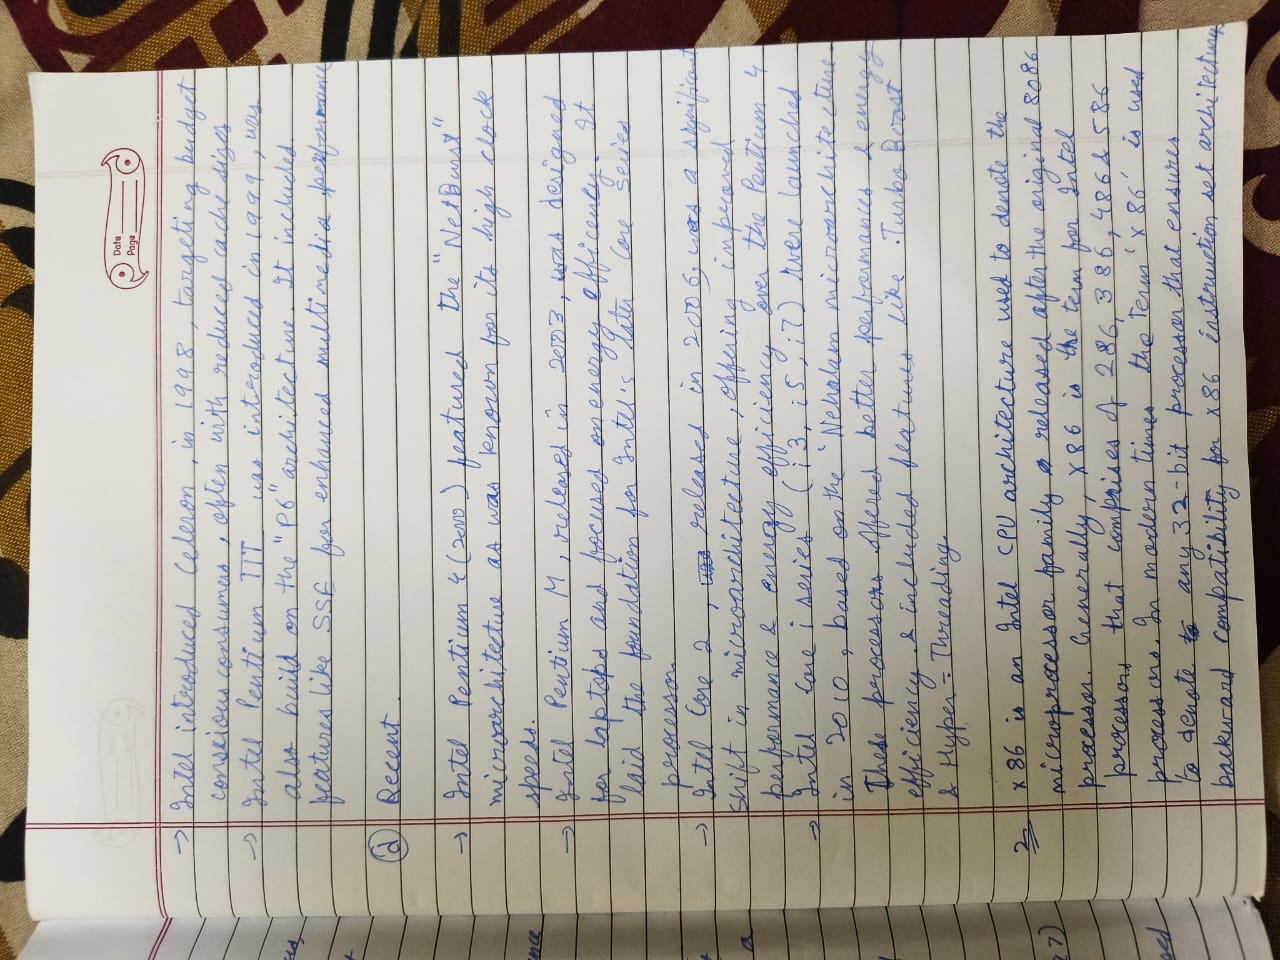 Date
Page
→ Intel introduced Celeron, in 1998, targeting budget
conscious consumers, often with reduced cache sizes
→ Intel Pentium III was introduced in 1999, was
also build on the "P6" architecture. It included
features like SSE for enhanced multimedia performance
d Recent.
→ Intel Pentium 4 (2000) featured the "NetBurst"
microarchitecture as was known for its high clock
speeds.
→ Intel Pentium M, released in 2003, was designed
for laptops and focused on energy efficency. It
laid the foundation for Intel's later Core series
processor.
→ Intel Core 2, was released in 2006, was a significant
shift in microarchitecture, offering improved
performance & energy efficiency over the Pentium 4
→ Intel Core i series (i3, i5, i7) were launched
in 2010, based on the 'Nehalam microarchitecture.
These processors offered better performances & energy
efficiency & included features like Turbo Boost
& Hyper-Threading.
2. x86 is an Intel CPU architecture used to denote the
microprocessor family released after the original 8086
processor. Generally, x86 is the term for Intel
processors that comprises of 286, 386, 486 & 586
processors. In modern times the term 'x86' is used
to denote to any 32-bit processor that ensures
backward compatibility for x86 instruction set architecture